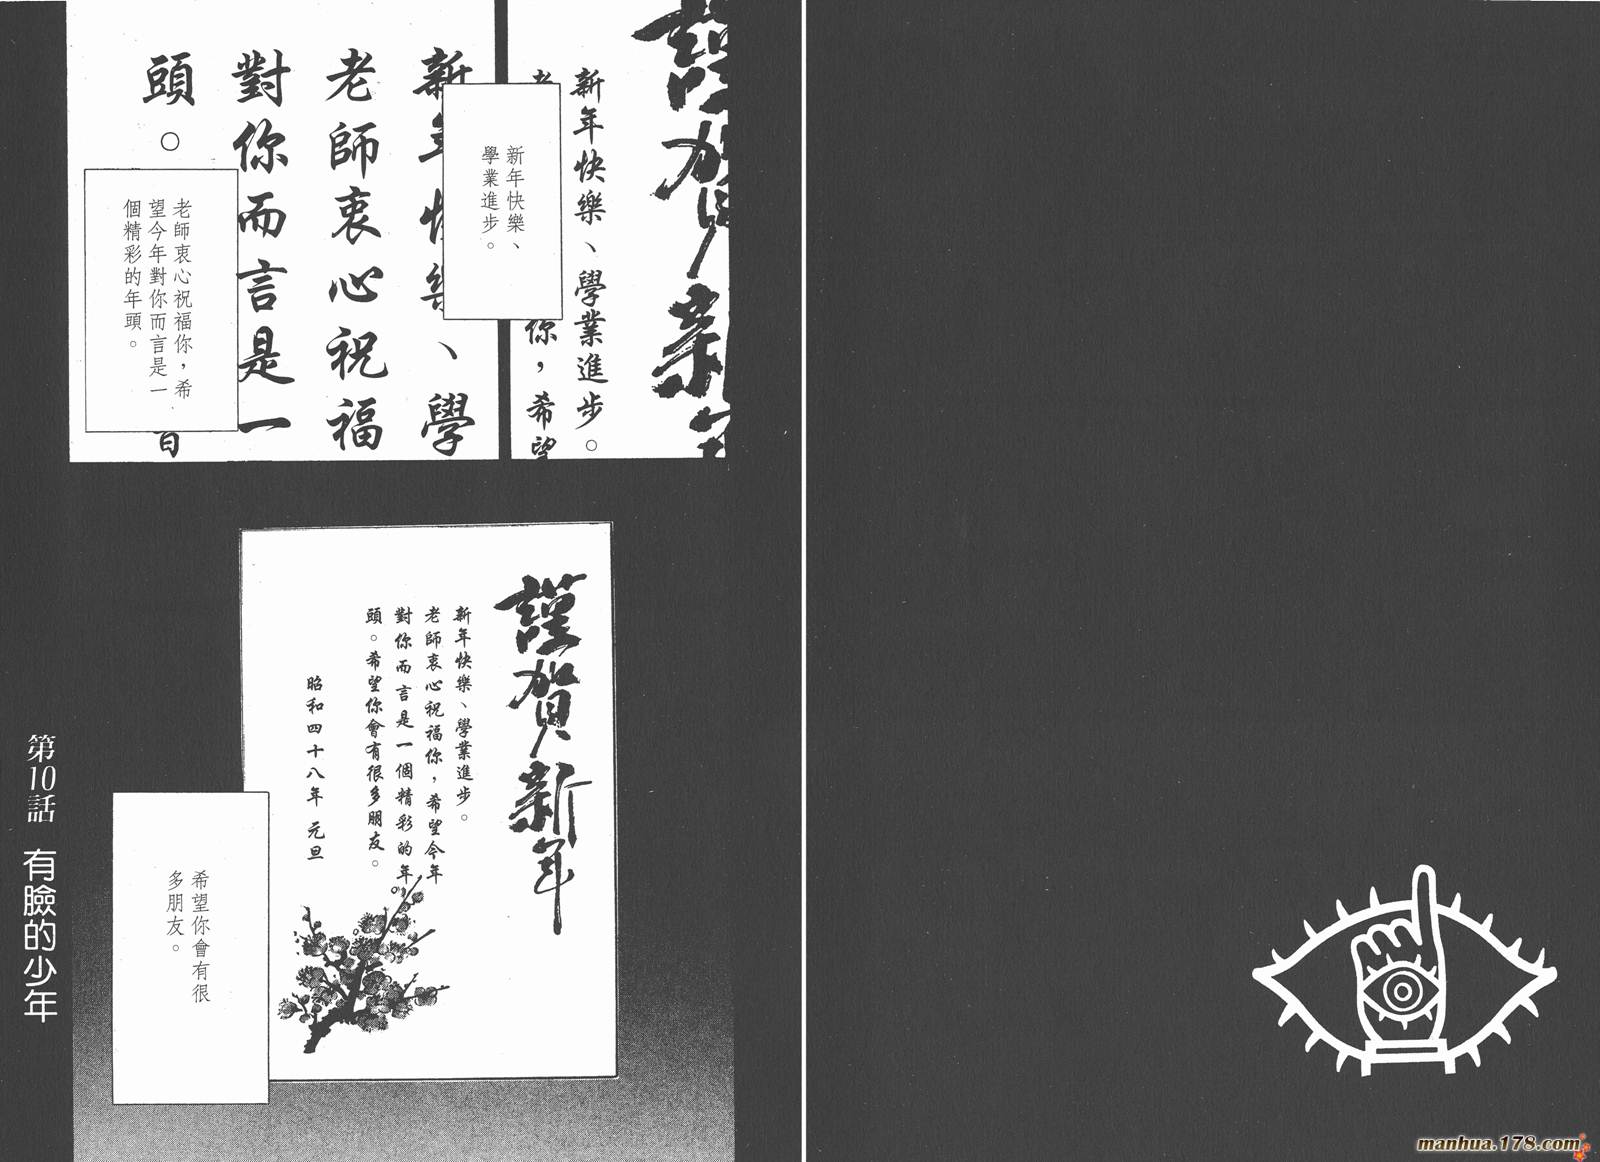 謹賀新年
新年快樂、學業進步。
你，希望
新年快樂、
學業進步。
新年快樂、學
老師衷心祝福
對你而言是一
頭。
老師衷心祝福你，希
望今年對你而言是一
個精彩的年頭。
謹賀新年
新年快樂、學業進步。
老師衷心祝福你，希望今年
對你而言是一個精彩的年
頭。希望你會有很多朋友。
昭和四十八年 元旦
希望你會有很
多朋友。
第10話 有臉的少年
manhua.178.com